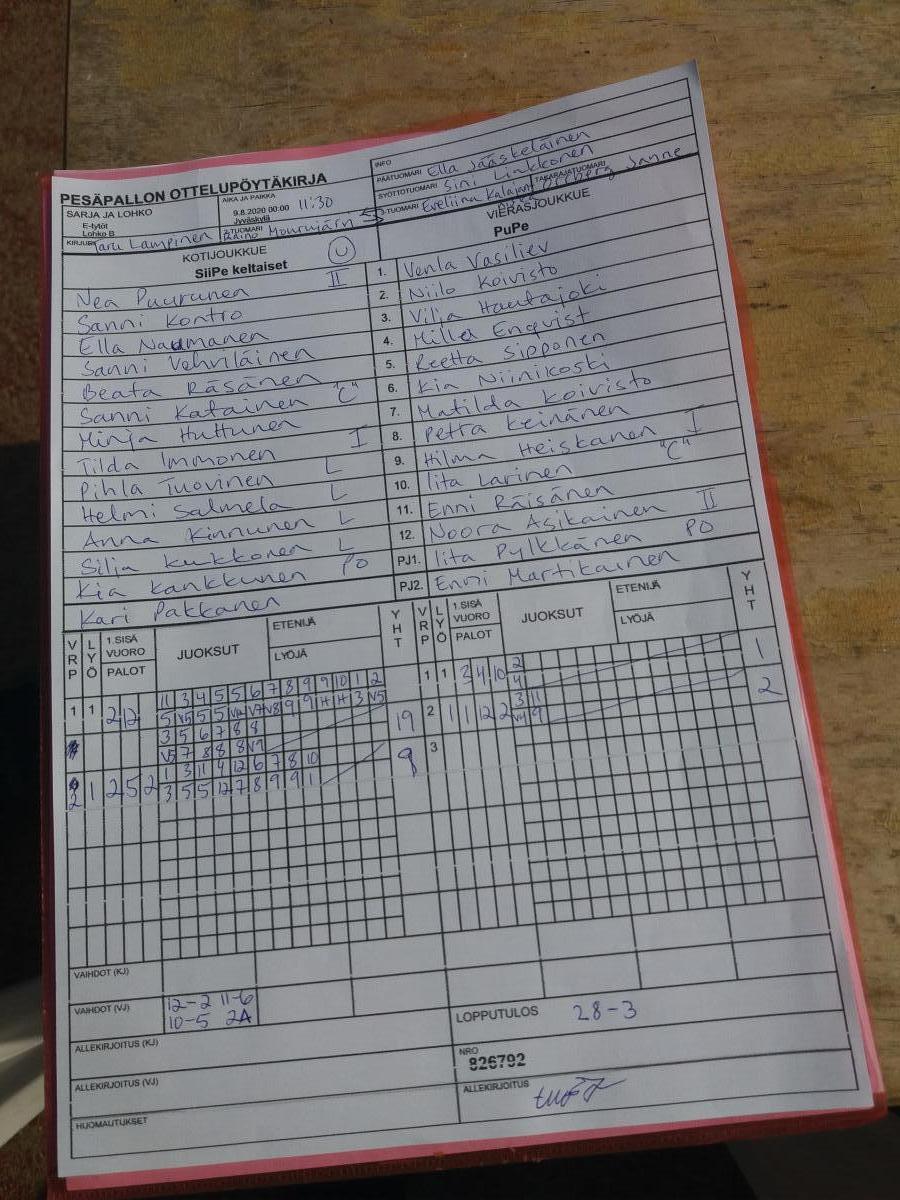 INFO
PÄÄTUOMARI Ella Jääskeläinen
SYÖTTÖTUOMARI Sini Linkkonen
TAKARAJATUOMARI Janne
3-TUOMARI Eveliina
PESÄPALLON OTTELUPÖYTÄKIRJA
SARJA JA LOHKO
E-tytöt
Lohko B
AIKA JA PAIKKA
9.8.2020 00:00 11:30
Jyväskylä
KIRJURI Taru Lampinen
2-TUOMARI Raino Mourujärvi
KOTIJOUKKUE U
SiiPe keltaiset
VIERASJOUKKUE
PuPe
Nea Puurunen II
1. Venla Vasiliev
Sanni Kontro
2. Niilo Koivisto
Ella Naumanen
3. Vilja Hautajoki
Sanni Vehviläinen
4. Milla Enqvist
Beata Räsänen
5. Reetta Sipponen
Sanni Katainen "C"
6. Kia Niinikoski
Minja Huttunen
7. Matilda Koivisto
Tilda Immonen I
8. Petra Keinänen
Pihla Tuovinen L
9. Hilma Heiskanen I
Helmi Salmela L
10. Iita Larinen "C"
Anna Kinnunen L
11. Enni Räisänen
Silja Kukkonen L
12. Noora Asikainen II
Kia Kankkunen PO
PJ1. Iita Pylkkänen PO
Kari Pakkanen
PJ2. Enni Martikainen
VRP LYÖ 1.SISÄ VUORO PALOT JUOKSUT ETENIJÄ LYÖJÄ YHT
VRP LYÖ 1.SISÄ VUORO PALOT JUOKSUT ETENIJÄ LYÖJÄ YHT
11 3 4 5 5 6 7 8 9 9 10 1 2
1 1 2 12
19
3 5 6 7 8 8
V5 7 8 8 8 V9
1 3 11 9 12 6 7 8 10
2 1 2 5 2 3 5 5 12 7 8 9 9 1 9
1 1 3 4 10 2 4 1
2 1 1 12 2 3 11 9 2
3
VAIHDOT (KJ)
VAIHDOT (VJ) 12-2 11-6
10-5 2A
LOPPUTULOS 28-3
ALLEKIRJOITUS (KJ)
NRO
826792
ALLEKIRJOITUS (VJ)
ALLEKIRJOITUS
HUOMAUTUKSET